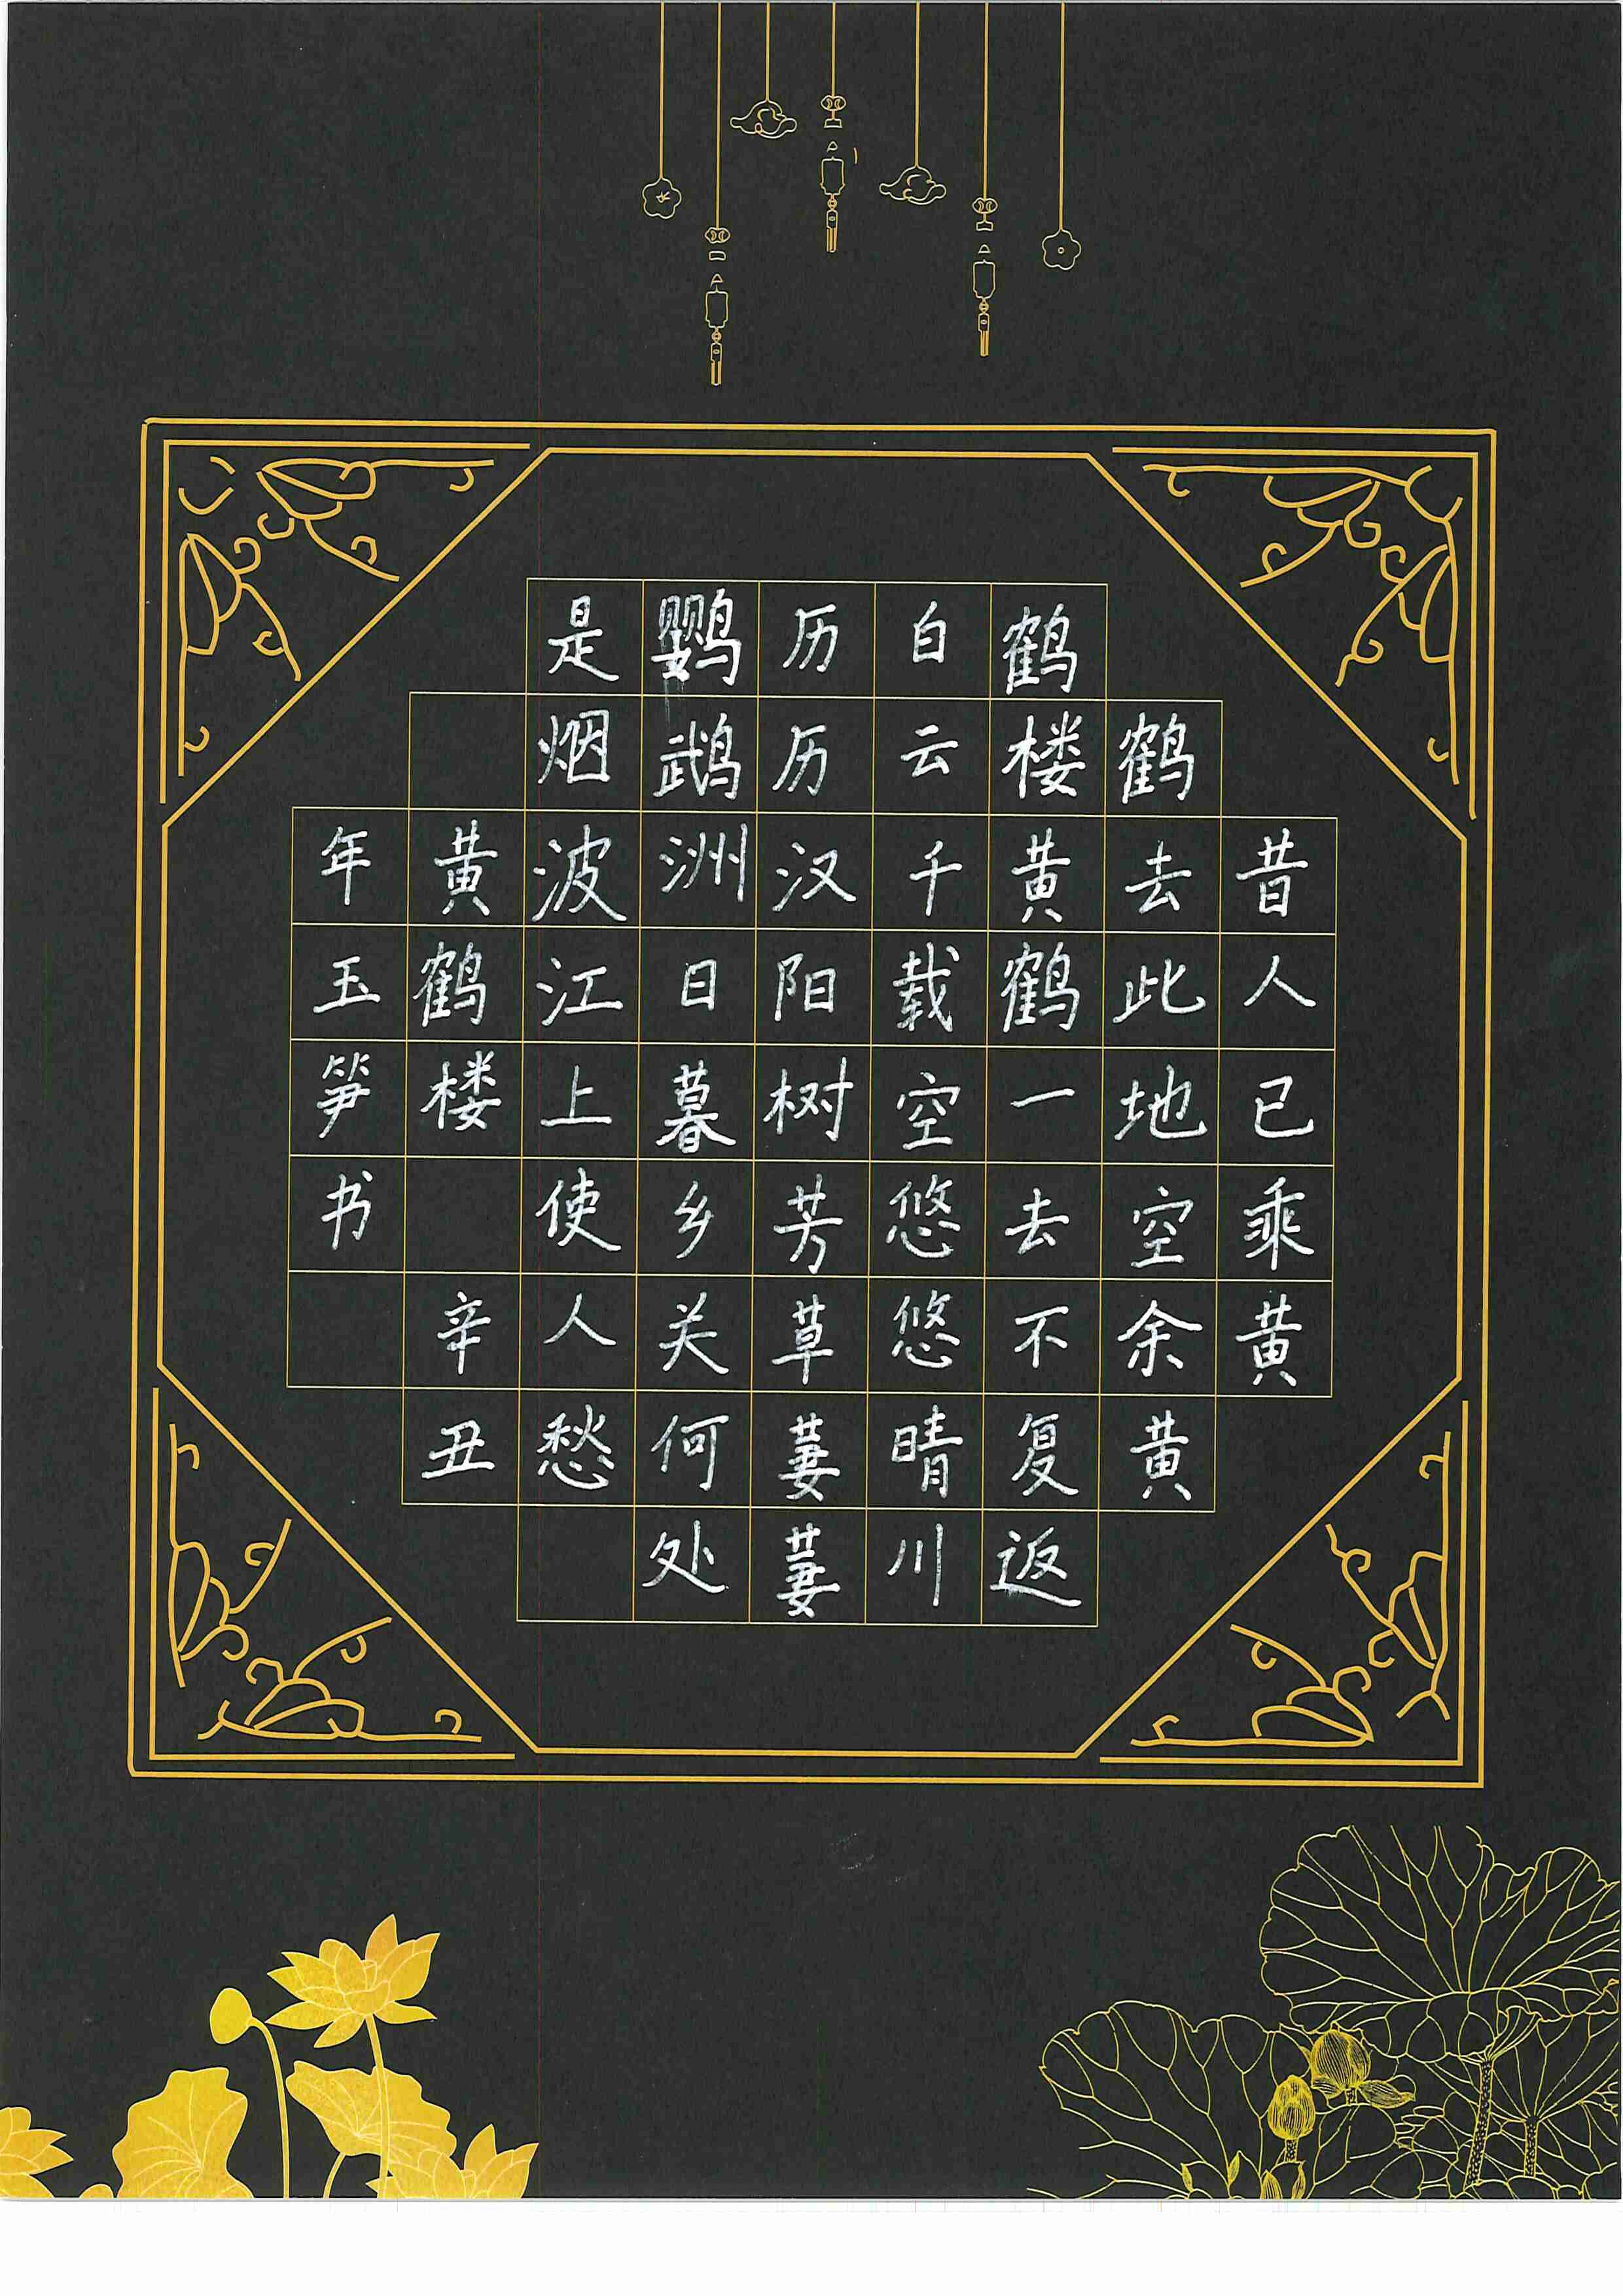 昔人已乘黄
鹤去此地空余黄
鹤楼黄鹤一去不复返
白云千载空悠悠晴川
历历汉阳树芳草萋萋
鹦鹉洲日暮乡关何处
是烟波江上使人愁
黄鹤楼 辛丑
年玉笋书